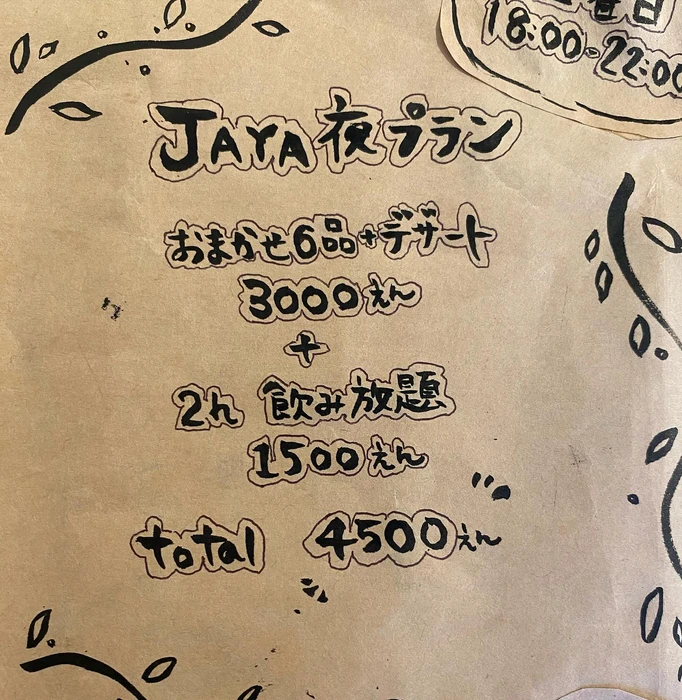 18:00~22:00
JAYA 夜プラン
おまかせ6品+デザート
3000えん
+
2h 飲み放題
1500えん
total 4500えん